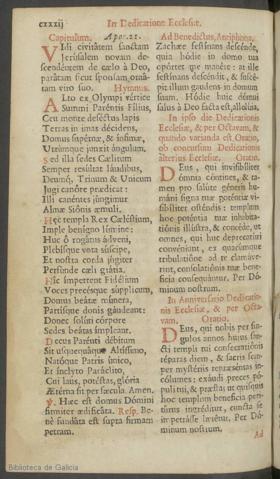 cxxxij
In Dedicatione Ecclesiæ.
Capitulum. Apoc. 21.
VIdi civitátem sanctam
Jerúsalem novam de-
scendéntem de cælo à Deo,
parátam sicut sponsam, ornã-
tam viro suo. Hymnus.
ALto ex Olýmpi vértice
Summi Paréntis Filius,
Ceu monte desectus lapis
Terras in imas décidens,
Domus supérnæ, & infimæ,
Utriúmque junxit ángulum.
Sed illa sedes Cælitum
Semper resúltat láudibus,
Deúmq; Trinum & Unicum
Jugi canóre prædicat:
Illi canéntes júngimur
Almæ Siónis æmuli.
Hæc templa Rex Cæléstium,
Imple benigno lúmine:
Huc ô rogátus ádveni,
Plebisque vota súscipe,
Et nostra corda júgiter
Perfúnde cæli grátia.
Hic impetrent Fidélium
Voces precésque súpplicum,
Domus beátæ múnera,
Partisque donis gáudeant:
Donec solúti córpore
Sedes beátas impleant.
Decus Parénti débitum
Sit usquequáque Altíssimo,
Natóque Patris único,
Et ínclyto Paráclito,
Cui laus, potéstas, glória
Ætérna sit per sæcula. Amen.
℣. Hæc est domus Dómini
firmiter ædificáta. Resp. Be-
nè fundáta est supra firmam
petram.
Ad Benedictus, Antiphona.
Zachæe festínans descénde,
quia hódie in domo tua
opórtet me manére: at ille
festínans descéndit, & suscé-
pit illum gaudens in domum
suam. Hódie huic dómui
salus à Deo facta est, allelúia.
In ipso die Dedicationis
Ecclesiæ, & per Octavam, &
quando varianda est Oratio,
ob concursum Dedicationis
alterius Ecclesiæ. Oratio.
DEus, qui invisibíliter
ómnia cóntines, & ta-
men pro salúte géneris hu-
máni signa tuæ poténtiæ vi-
sibíliter osténdis: templum
hoc poténtia tuæ inhabita-
tiónis illústra, & concéde, ut
omnes, qui huc deprecatúri
convéniunt, ex quacúmque
tribulatióne ad te clamáve-
rint, consolatiónis tuæ bene-
fícia consequántur. Per Dó-
minum nostrum.
In Anniversario Dedicatio-
nis Ecclesiæ, & per Octa-
vam. Oratio.
DEus, qui nobis per sín-
gulos annos hujus san-
cti templi tui consecratiónis
réparas diem, & sacris sem-
per mystériis repræséntas in-
cólumes: exáudi preces pó-
puli tui, & præsta; ut quisquis
hoc templum beneficia peti-
túrus ingréditur, cuncta se
impetrásse lætétur. Per Dó-
minum nostrum.
Ad
Biblioteca de Galicia